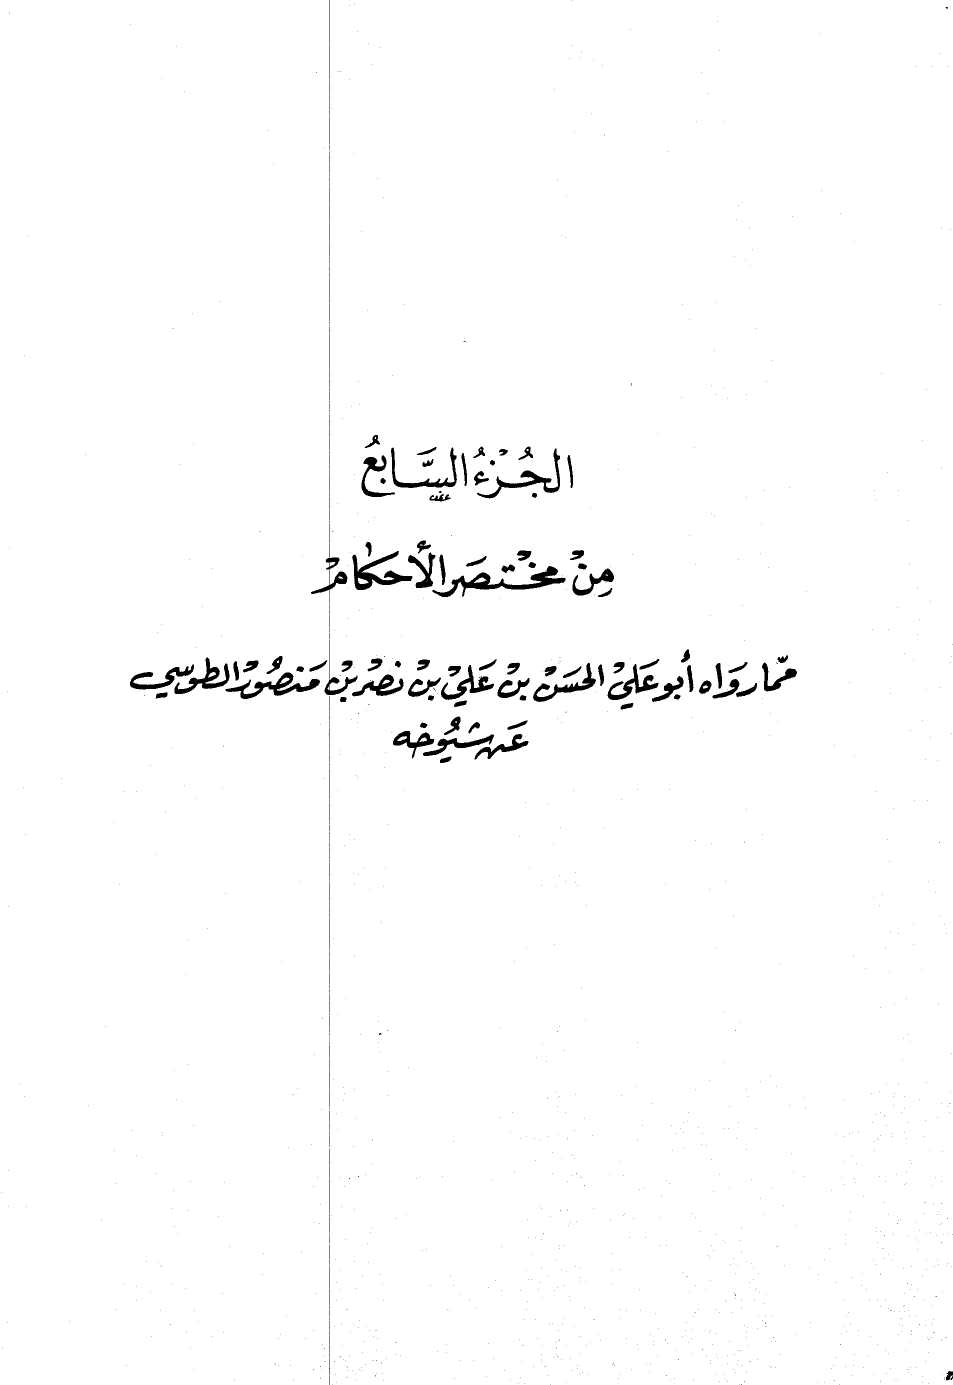 الجُزْءُ السَّابعُ
مِنْ مختصَر الأحكام
ممّا رَوَاه أبو عَليْ الحسَنْ بنْ عَليْ بنْ نصْر بنْ مَنصُورْ الطوسي
عَن شيُوخه